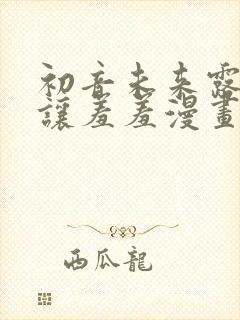 初音未来露
讓羞羞漫畫
西瓜龍